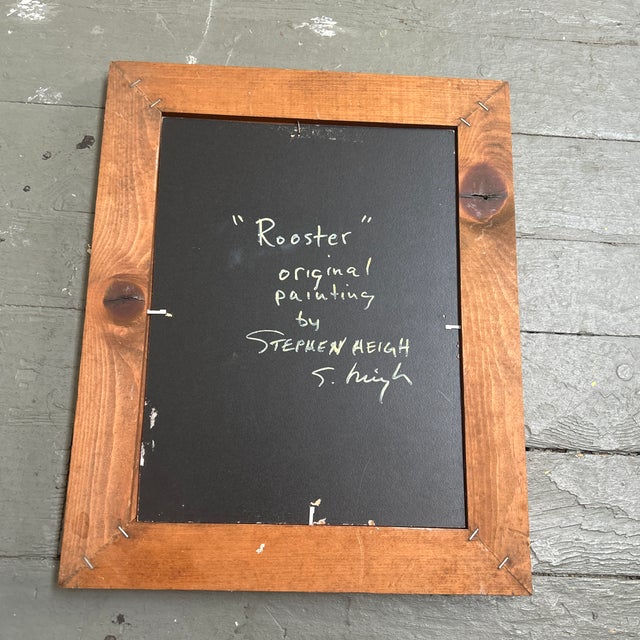 "Rooster"
original
painting
by
STEPHEN HEIGH
S. Heigh